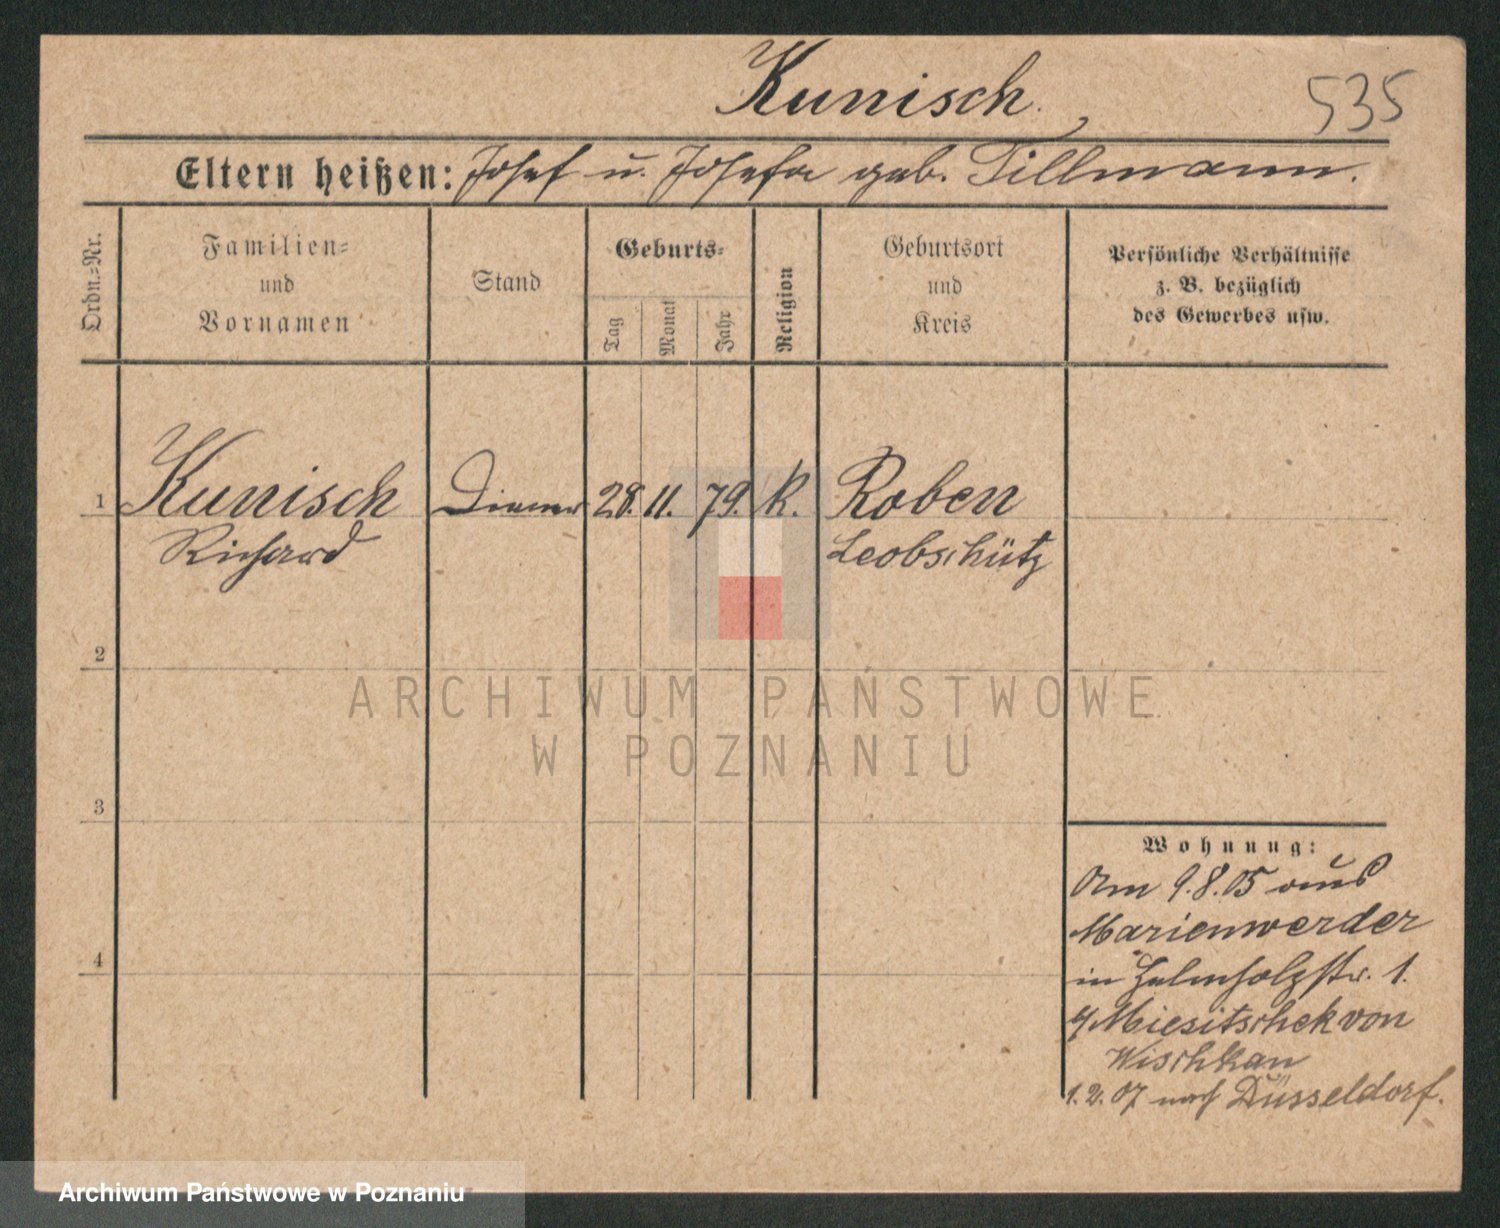 Kunisch.
535
Eltern heißen: Josef u. Josefa geb. Tillmann.
Ordn.=Nr.
Familien=
und
Vornamen
Stand
Geburts=
Tag
Monat
Jahr
Religion
Geburtsort
und
Kreis
Persönliche Verhältnisse
z. B. bezüglich
des Gewerbes usw.
1 Kunisch Diener 28. 11. 79. K. Roben
Richard Leobschütz
2
ARCHIWUM PAŃSTWOWE
W POZNANIU
3
Wohnung:
Am 9.8.05 aus
Marienwerder
4
in Helmholzstr. 1.
Miesitschek von
Wischkau
1.2.07 nach Düsseldorf.
Archiwum Państwowe w Poznaniu